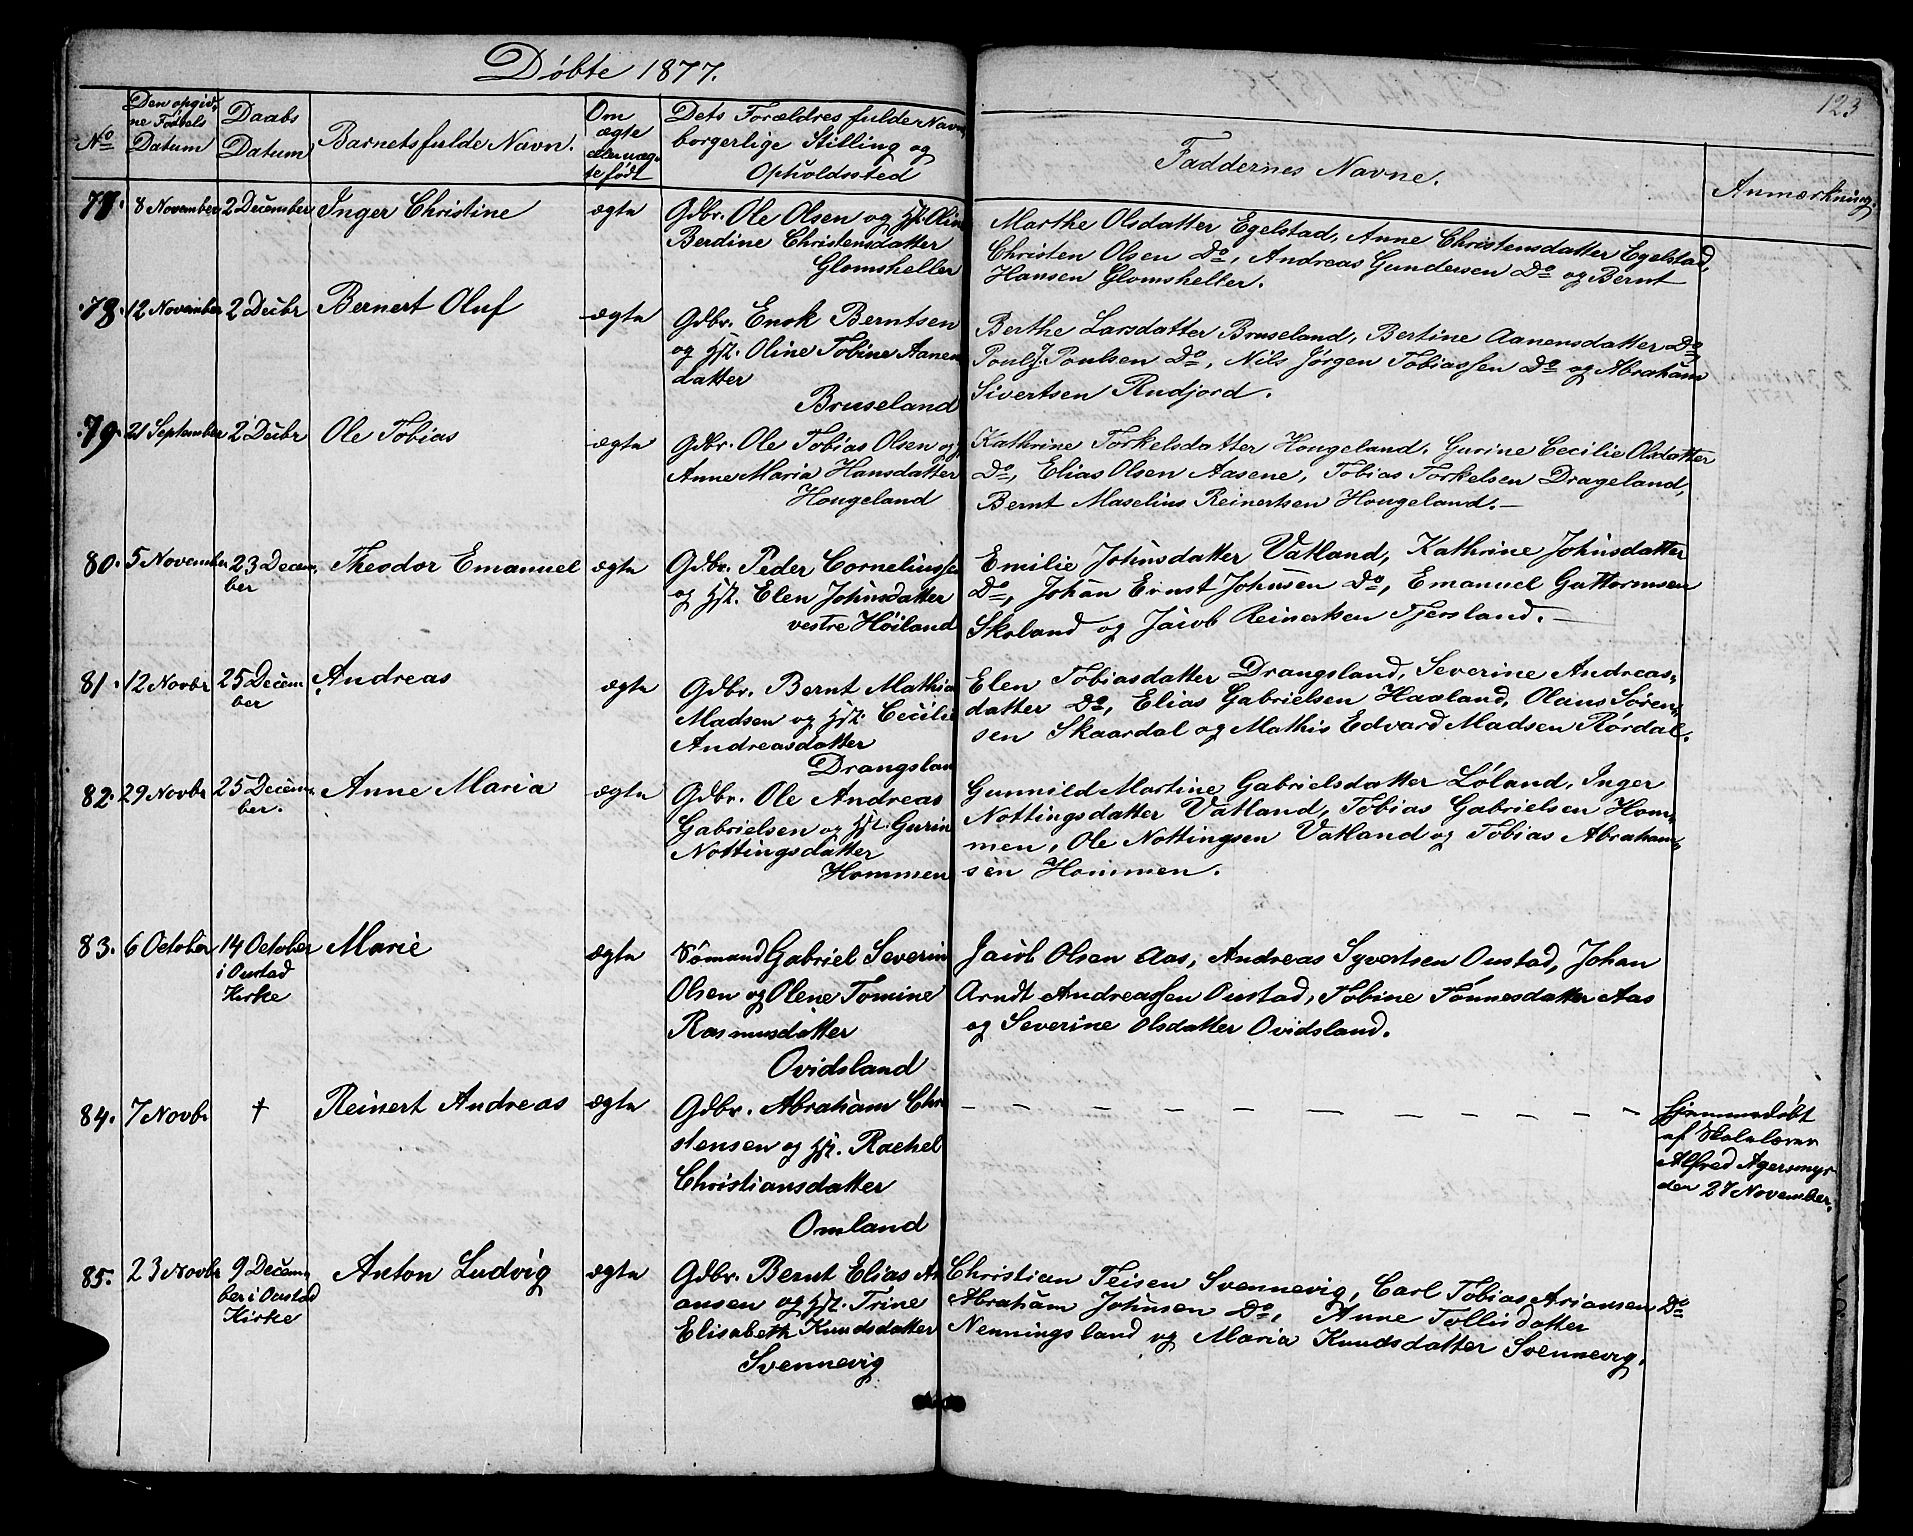 Døbte 1877.
123
No
Den opgiv-
ne Fødsels
Datum
Daabs
Datum
Barnets fulde Navn.
Om
ægte
eller uæg-
te født
Dets Forældres fulde Navn
borgerlige Stilling og
Opholdssted
Faddernes Navne.
Anmærkning.
77. 8 November 2 December Inger Christine ægte
Gdbr. Ole Olsen og Hst. Olin
Berdine Christensdatter
Glomsheller
Marthe Olsdatter Egelstad, Anne Christensdatter Egelstad,
Christen Olsen Do, Andreas Gundersen Do og Bernt
Hansen Glomsheller.
78. 12 November 2 Decbr Bernert Oluf ægte
Gdbr. Enok Berntsen
og Hst. Oline Tobine Aanen
datter
Bruseland
Berthe Larsdatter Bruseland, Bertine Aanensdatter Do
Poul J. Poulsen Do, Nils Jørgen Tobiassen Do og Abraham
Sivertsen Rudjord.
79. 21 September 2 Decbr Ole Tobias ægte
Gdbr. Ole Tobias Olsen og
Anne Maria Hansdatter
Hougeland
Kathrine Torkelsdatter Hougeland, Gurine Cecilie Olsdatter
Do, Elias Olsen Aasene, Tobias Torkelsen Drageland,
Bernt Maselius Reinertsen Hougeland.—
80. 5 November 23 Decem-
ber
Theodor Emanuel ægte
Gdbr. Peder Corneliusse
og Hst. Elen Johnsdatter
vestre Høiland
Emilie Johnsdatter Vatland, Kathrine Johnsdatter
Do, Johan Ernst Johnsen Do, Emanuel Guttormsen
Skoland og Jacob Reinertsen Tjersland.—
81. 12 Novbr 25 Decem-
ber
Andreas ægte
Gdbr. Bernt Mathia
Madsen og Hst. Cecilie
Andreasdatter
Drangslan
Elen Tobiasdatter Drangsland, Severine Andreas-
datter Do, Elias Gabrielsen Haaland, Olaus Søren-
sen Skaardal og Mathis Edvard Madsen Rørdal.
82. 29 Novbr 25 Decem-
ber.
Anne Maria ægte
Gdbr. Ole Andreas
Gabrielsen og Hst. Gurin
Nottingsdatter
Hommen
Gunnild Martine Gabrielsdatter Løland, Inger
Nottingsdatter Vatland, Tobias Gabrielsen Hom-
men, Ole Nottingsen Vatland og Tobias Abraham-
sen Hommen.
83. 6 October 14 October
i Oustad
Kirke
Marie ægte
Sømand Gabriel Severin
Olsen og Olene Tomine
Rasmusdatter
Ovidsland
Jacob Olsen Aas, Andreas Syvertsen Oustad, Johan
Arndt Andreassen Oustad, Tobine Tønnesdatter Aas
og Severine Olsdatter Ovidsland.
84. 7 Novbr † Reinert Andreas ægte
Gdbr. Abraham Chri
stensen og Hst. Rachel
Christiansdatter
Omland
— — — — — — — — — — — —
Hjemmedøbt
af Skolelærer
Alfred Agersmyr
den 27 November.
85. 23 Novbr 9 Decem-
ber i Oustad
Kirke
Anton Ludvig ægte
Gdbr. Bernt Elias Ar
iansen og Hst. Trine
Elisabeth Knudsdatter
Svennevig
Christian Teisen Svennevig, Carl Tobias Ariansen Do
Abraham Johnsen Do, Anne Tollisdatter
Nenningsland og Maria Knudsdatter Svennevig.